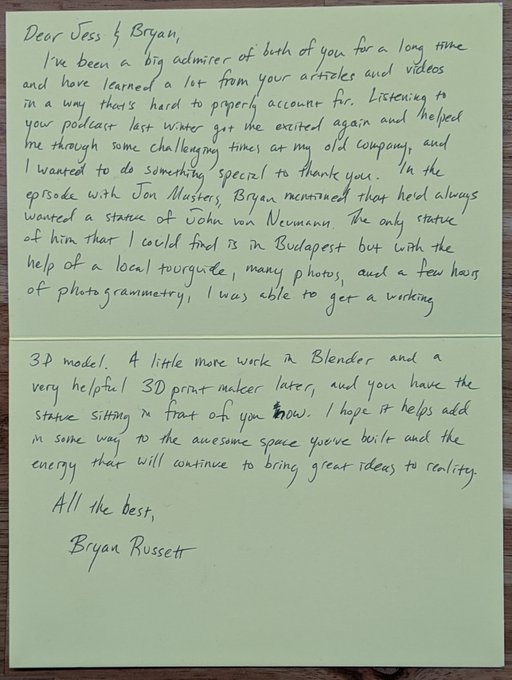 Dear Jess & Bryan,
I've been a big admirer of both of you for a long time
and have learned a lot from your articles and videos
in a way that's hard to properly account for. Listening to
your podcast last winter got me excited again and helped
me through some challenging times at my old company, and
I wanted to do something special to thank you. In the
episode with Jon Masters, Bryan mentioned that he'd always
wanted a statue of John von Neumann. The only statue
of him that I could find is in Budapest but with the
help of a local tourguide, many photos, and a few hours
of photogrammetry, I was able to get a working
3D model. A little more work in Blender and a
very helpful 3D print maker later, and you have the
statue sitting in front of you now. I hope it helps add
in some way to the awesome space you've built and the
energy that will continue to bring great ideas to reality.
All the best,
Bryan Russett